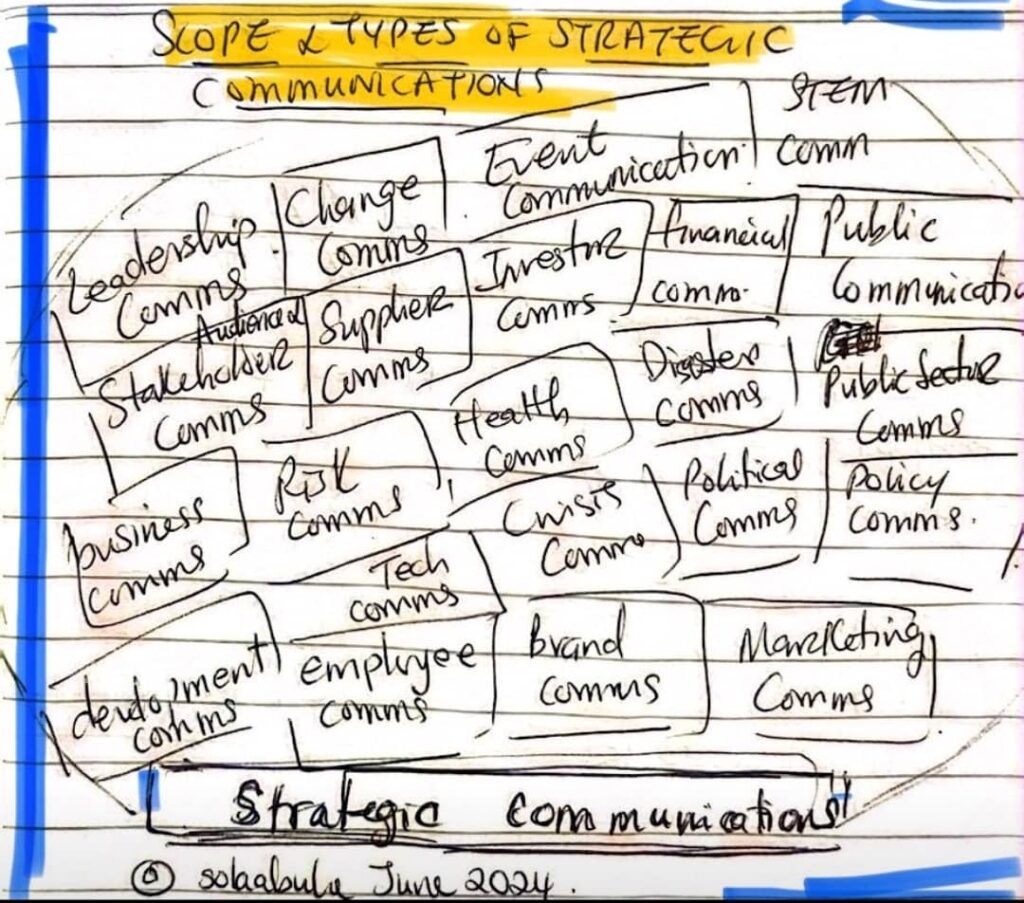 SCOPE & TYPES OF STRATEGIC
COMMUNICATIONS
STEM
comm
Event
Communication
Change
Comms
Leadership
Comms
Investor
Comms
financial
comm.
Public
Communicatio
Audience &
Stakeholder
Comms
Supplier
Comms
Health
Comms
Disaster
comms
Public Sector
Comms
business
comms
Risk
comms
Crisis
Comms
Political
Comms
Policy
comms.
Tech
comms
development
comms
employee
comms
Brand
comms
Marketing
Comms
Strategic communications
June 2024.